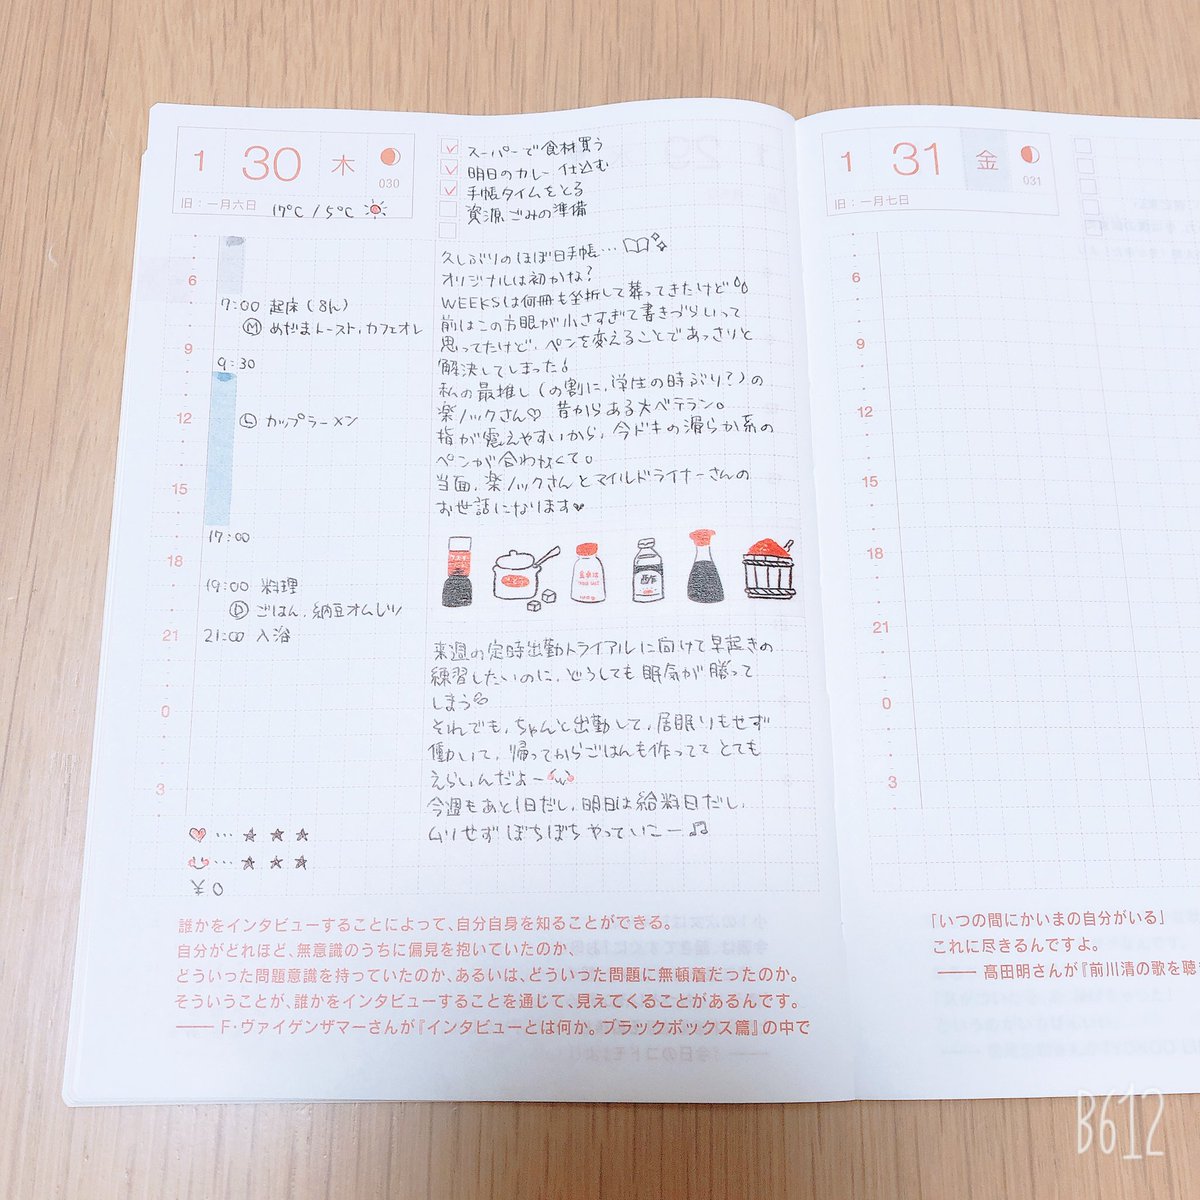 1 30 木
030
旧：一月六日 17℃ / 5℃
スーパーで食材買う
明日のカレー仕込む
手帳タイムをとる
資源ごみの準備
6
7:00 起床（8h）
Ⓜ めだまトースト，カフェオレ
9
9:30
12
Ⓛ カップラーメン
15
17:00
18
19:00 料理
Ⓓ ごはん，納豆オムレツ
21
21:00 入浴
0
3
♥…★★★
…★★★
¥0
久しぶりのほぼ日手帳…
オリジナルは初かな？
WEEKSは何冊も挫折して葬ってきたけど
前はこの方眼が小さすぎて書きづらいって
思ってたけど，ペンを変えることであっさりと
解決してしまった！
私の最推し（の割に，学生の時ぶり？）の
楽ノックさん♡ 昔からある大ベテラン。
指が震えやすいから，今ドキの滑らか系の
ペンが合わなくて。
当面，楽ノックさんとマイルドライナーさんの
お世話になります♥
食卓塩
酢
来週の定時出勤トライアルに向けて早起きの
練習したいのに，どうしても眠気が勝って
しまう
それでも，ちゃんと出勤して，居眠りもせず
働いて，帰ってからごはんも作ってて とても
えらいんだよー
今週もあと1日だし，明日は給料日だし，
ムリせず ぼちぼち やっていこー♫
誰かをインタビューすることによって、自分自身を知ることができる。
自分がどれほど、無意識のうちに偏見を抱いていたのか、
どういった問題意識を持っていたのか、あるいは、どういった問題に無頓着だったのか。
そういうことが、誰かをインタビューすることを通じて、見えてくることがあるんです。
―― F・ヴァイゲンザマーさんが『インタビューとは何か。ブラックボックス篇』の中で
1 31 金
031
旧：一月七日
6
9
12
15
18
21
0
3
「いつの間にかいまの自分がいる」
これに尽きるんですよ。
―― 髙田明さんが『前川清の歌を聴
B612